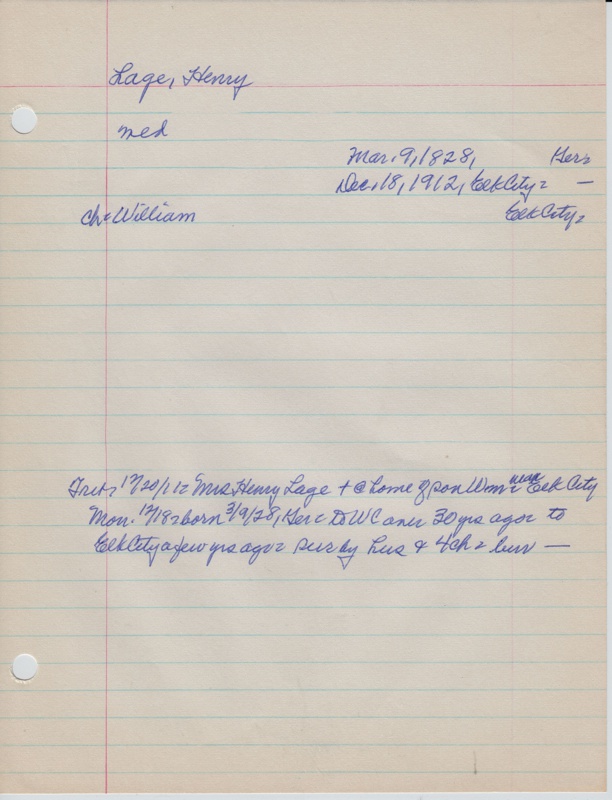 Lage, Henry
med
Mar. 9, 1828, Ger=
Dec. 18, 1912, Elk City= —
ch= William Elk City=
12/20/1 = Mrs Henry Lage + @ home of son Wm = near Elk City
Mon. 12/18 = born 3/9/28, Ger = to WC over 30 yrs ago = to
Elk City a few yrs ago = sur by hus & 4 ch = bur —